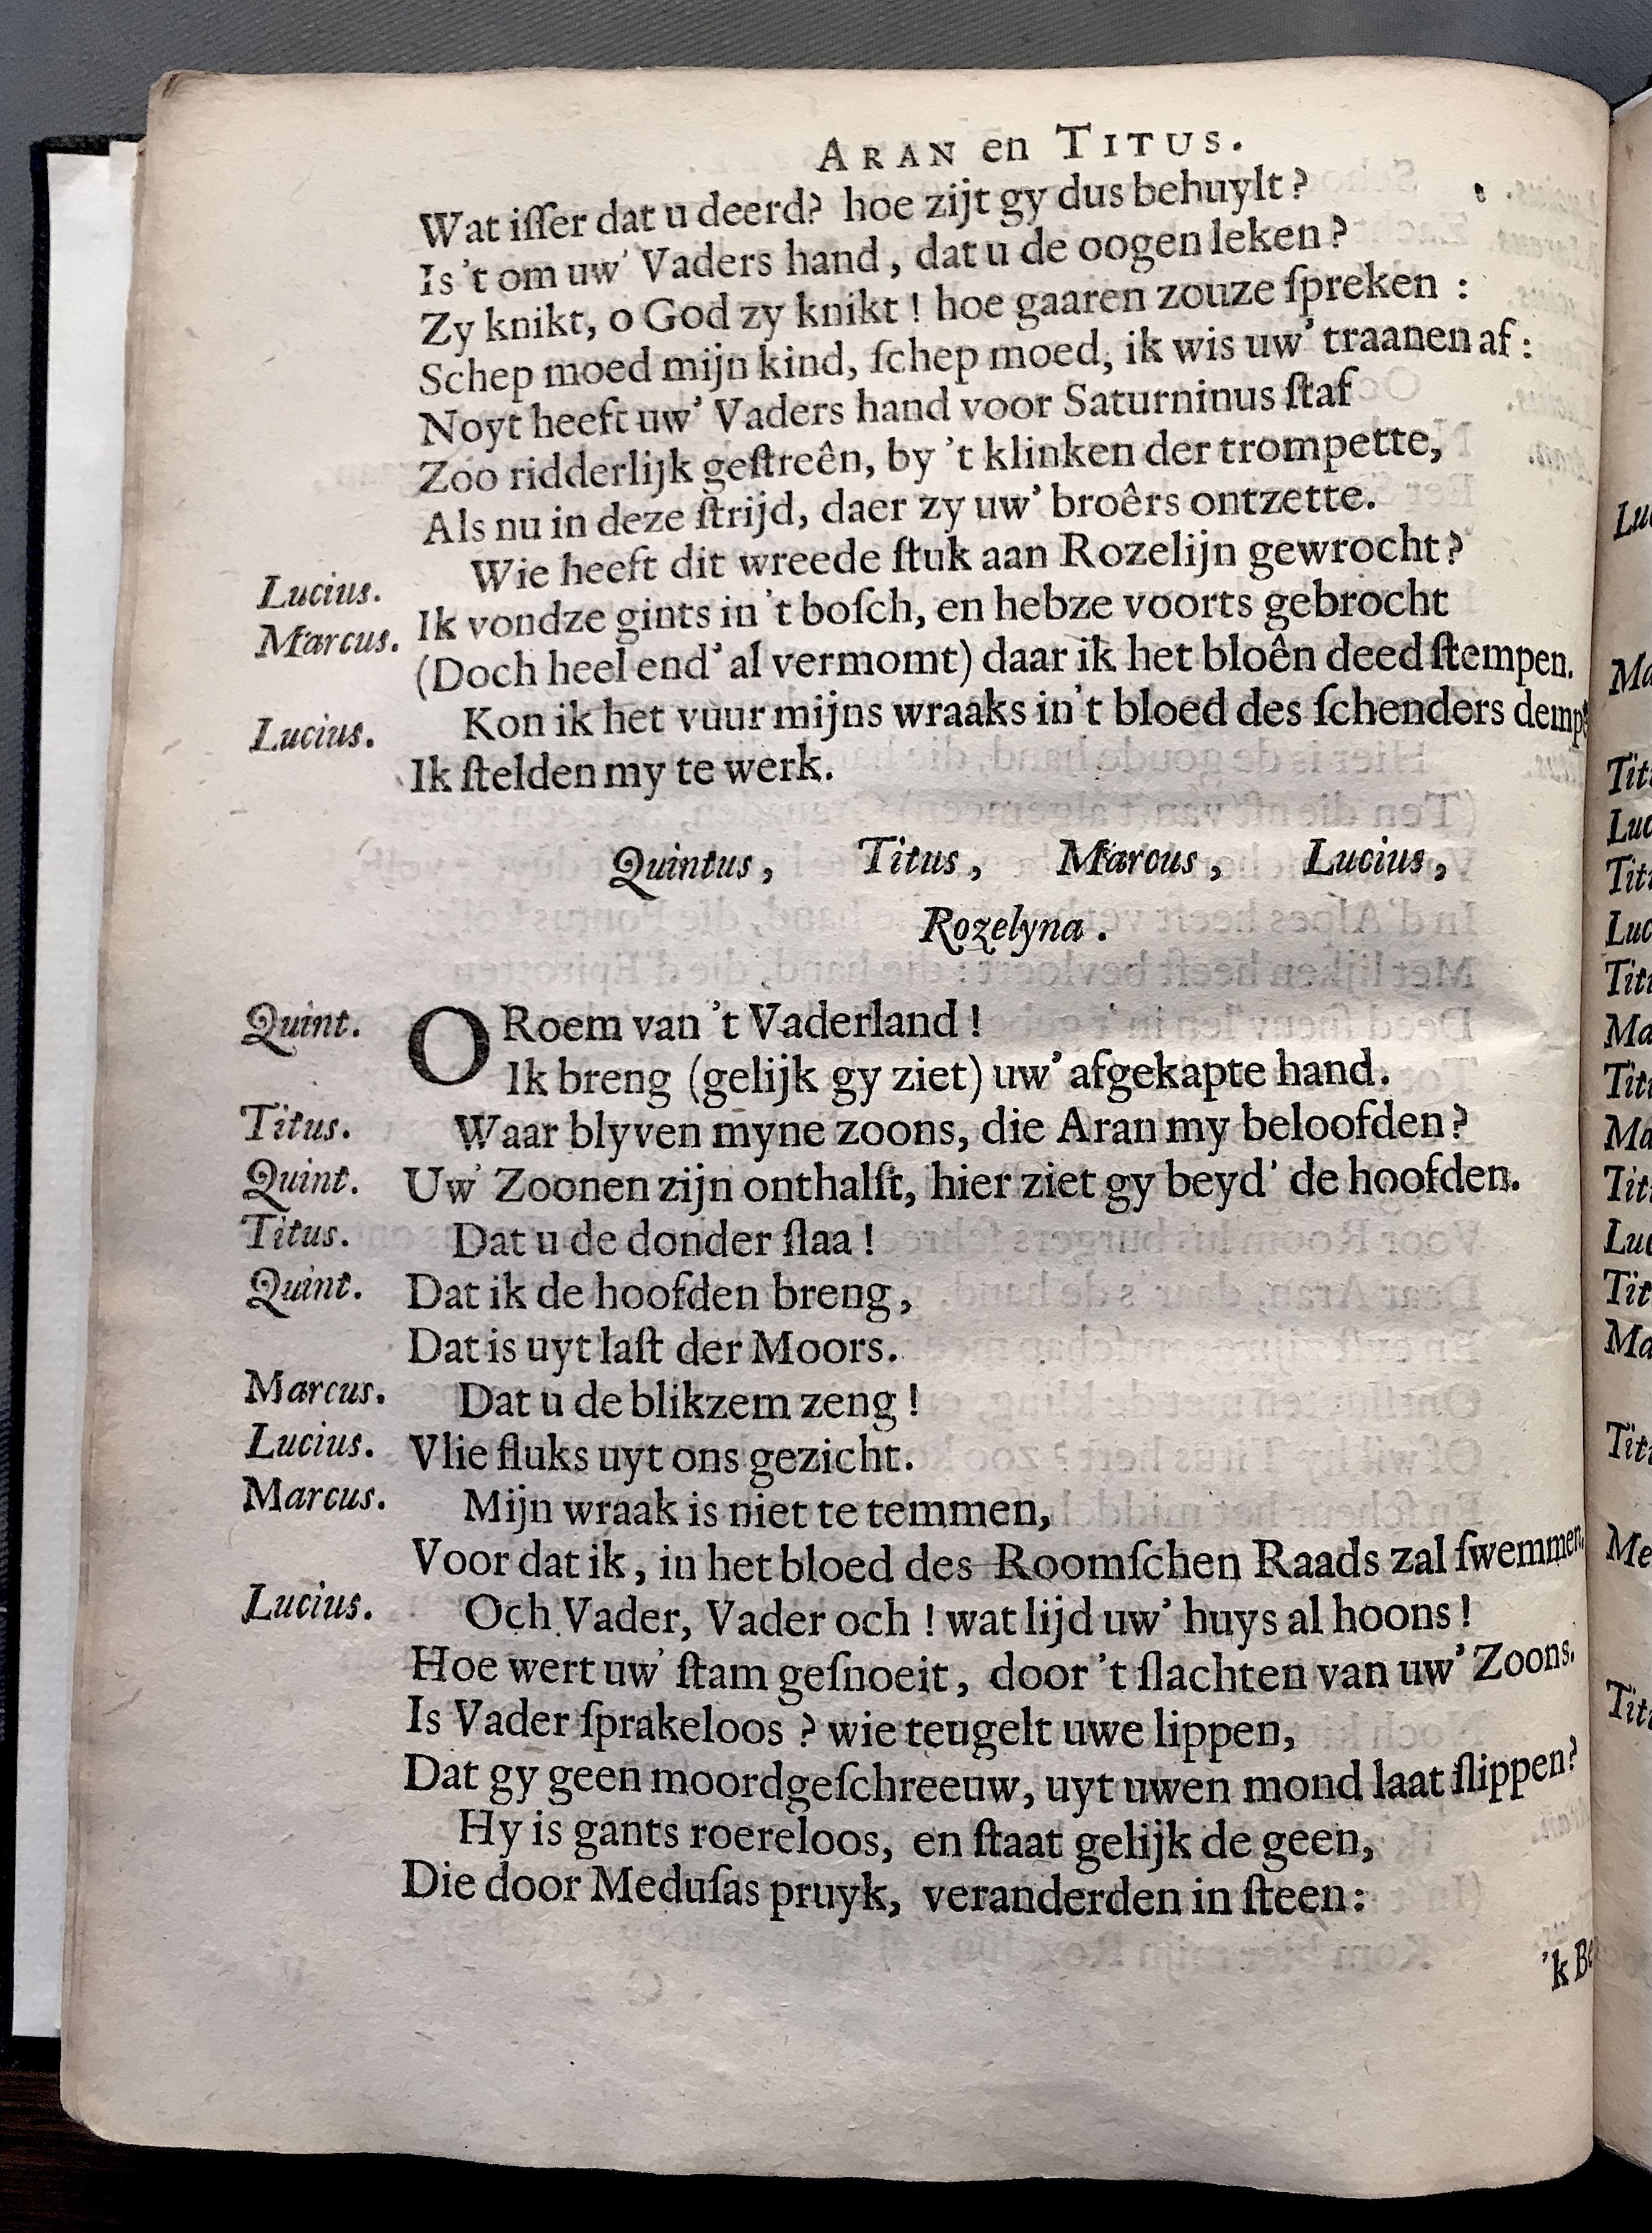 ARAN en TITUS.
Wat iſſer dat u deerd? hoe zijt gy dus behuylt?
Is 't om uw' Vaders hand, dat u de oogen leken?
Zy knikt, o God zy knikt! hoe gaaren zouze ſpreken:
Schep moed mijn kind, ſchep moed, ik wis uw' traanen af:
Noyt heeft uw' Vaders hand voor Saturninus ſtaf
Zoo ridderlijk geſtreên, by 't klinken der trompette,
Als nu in deze ſtrijd, daer zy uw' broêrs ontzette.
Lucius. Wie heeft dit wreede ſtuk aan Rozelijn gewrocht?
Marcus. Ik vondze gints in 't boſch, en hebze voorts gebrocht
(Doch heel end' al vermomt) daar ik het bloên deed ſtempen.
Lucius. Kon ik het vuur mijns wraaks in 't bloed des ſchenders
Ik ſtelden my te werk.
Quintus, Titus, Marcus, Lucius,
Rozelyna.
Quint. O Roem van 't Vaderland!
Ik breng (gelijk gy ziet) uw' afgekapte hand.
Titus. Waar blyven myne zoons, die Aran my beloofden?
Quint. Uw' Zoonen zijn onthalſt, hier ziet gy beyd' de hoofden.
Titus. Dat u de donder ſlaa!
Quint. Dat ik de hoofden breng,
Dat is uyt laſt der Moors.
Marcus. Dat u de blikzem zeng!
Lucius. Vlie fluks uyt ons gezicht.
Marcus. Mijn wraak is niet te temmen,
Voor dat ik, in het bloed des Roomſchen Raads zal ſwemmen.
Lucius. Och Vader, Vader och! wat lijd uw' huys al hoons!
Hoe wert uw' ſtam geſnoeit, door 't ſlachten van uw' Zoons.
Is Vader ſprakeloos? wie teugelt uwe lippen,
Dat gy geen moordgeſchreeuw, uyt uwen mond laat ſlippen?
Hy is gants roereloos, en ſtaat gelijk de geen,
Die door Meduſas pruyk, veranderden in ſteen:
'k